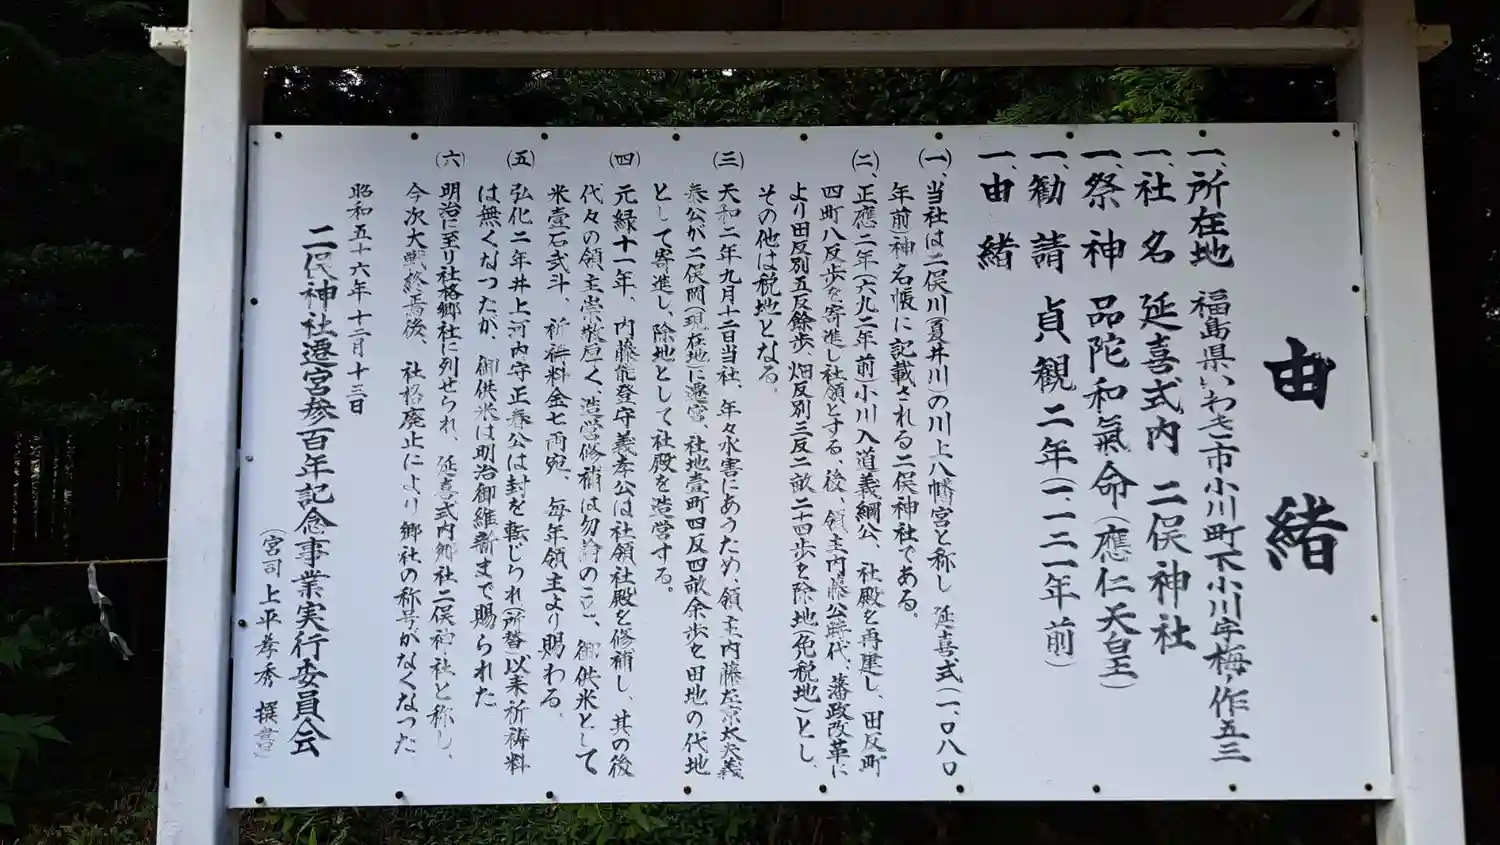 由緒
一、所在地 福島県いわき市小川町下小川字梅ノ作五三
一、社名 延喜式内 二俣神社
一、祭神 品陀和氣命(應仁天皇)
一、勧請 貞観二年(一、一二一年前)
一、由緒
(一)、当社は二俣川(夏井川)の川上八幡宮と称し 延喜式(一、〇八〇
年前)神名帳に記載される二俣神社である。
(二)、正應二年(六九二年前)小川入道義綱公、社殿を再建し、田反町
四町八反歩を寄進し社領とする、後、領主内藤公時代、藩政改革に
より田反別五反餘歩、畑反別三反二畝二十四歩を除地(免税地)とし
その他は税地となる。
(三) 天和二年九月十二日当社、年々水害にあうため、領主内藤左京太夫義
泰公が二俣岡(現在地)に遷宮、社地壹町四反四畝余歩を田地の代地
として寄進し、除地として社殿を造営する。
(四) 元緑十一年、内藤能登守義孝公は社領社殿を修補し、其の後
代々の領主崇敬厚く、造営修補は勿論のこと、御供米として
米壹石弐斗、祈祷料金七両宛、毎年領主より賜わる。
(五) 弘化二年井上河内守正春公は封を転じられ(所替)以来祈祷料
は無くなつたが、御供米は明治御維新まで賜られた
(六) 明治に至り社格郷社に列せられ、延喜式内郷社二俣神社と称し、
今次大戦終焉後、社格廃止により郷社の称号がなくなつた
昭和五十六年十二月十三日
二俣神社遷宮参百年記念事業実行委員会
(宮司 上平孝秀 撰書)